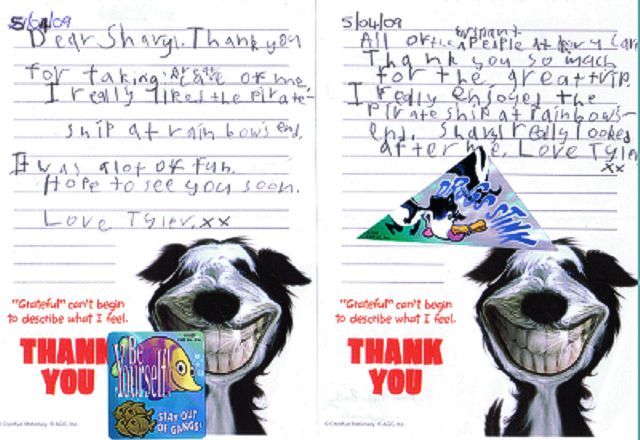 5/04/09
Dear Sharyl. Thank you
for taking great care of me.
I really liked the pirate
ship at rainbows end.
It was a lot of fun.
Hope to see you soon.
Love Tyler. xx
"Grateful" can't begin
to describe what I feel.
THANK
YOU
Be
Yourself!
STAY OUT
OF GANGS!
5/04/09
All of the people at
Thank you so much
for the great trip.
I really enjoyed the
Pirate ship at rainbows-
end. Sharyl really looked
after me. Love Tyler
xx
DRUGS STINK
"Grateful" can't begin
to describe what I feel.
THANK
YOU